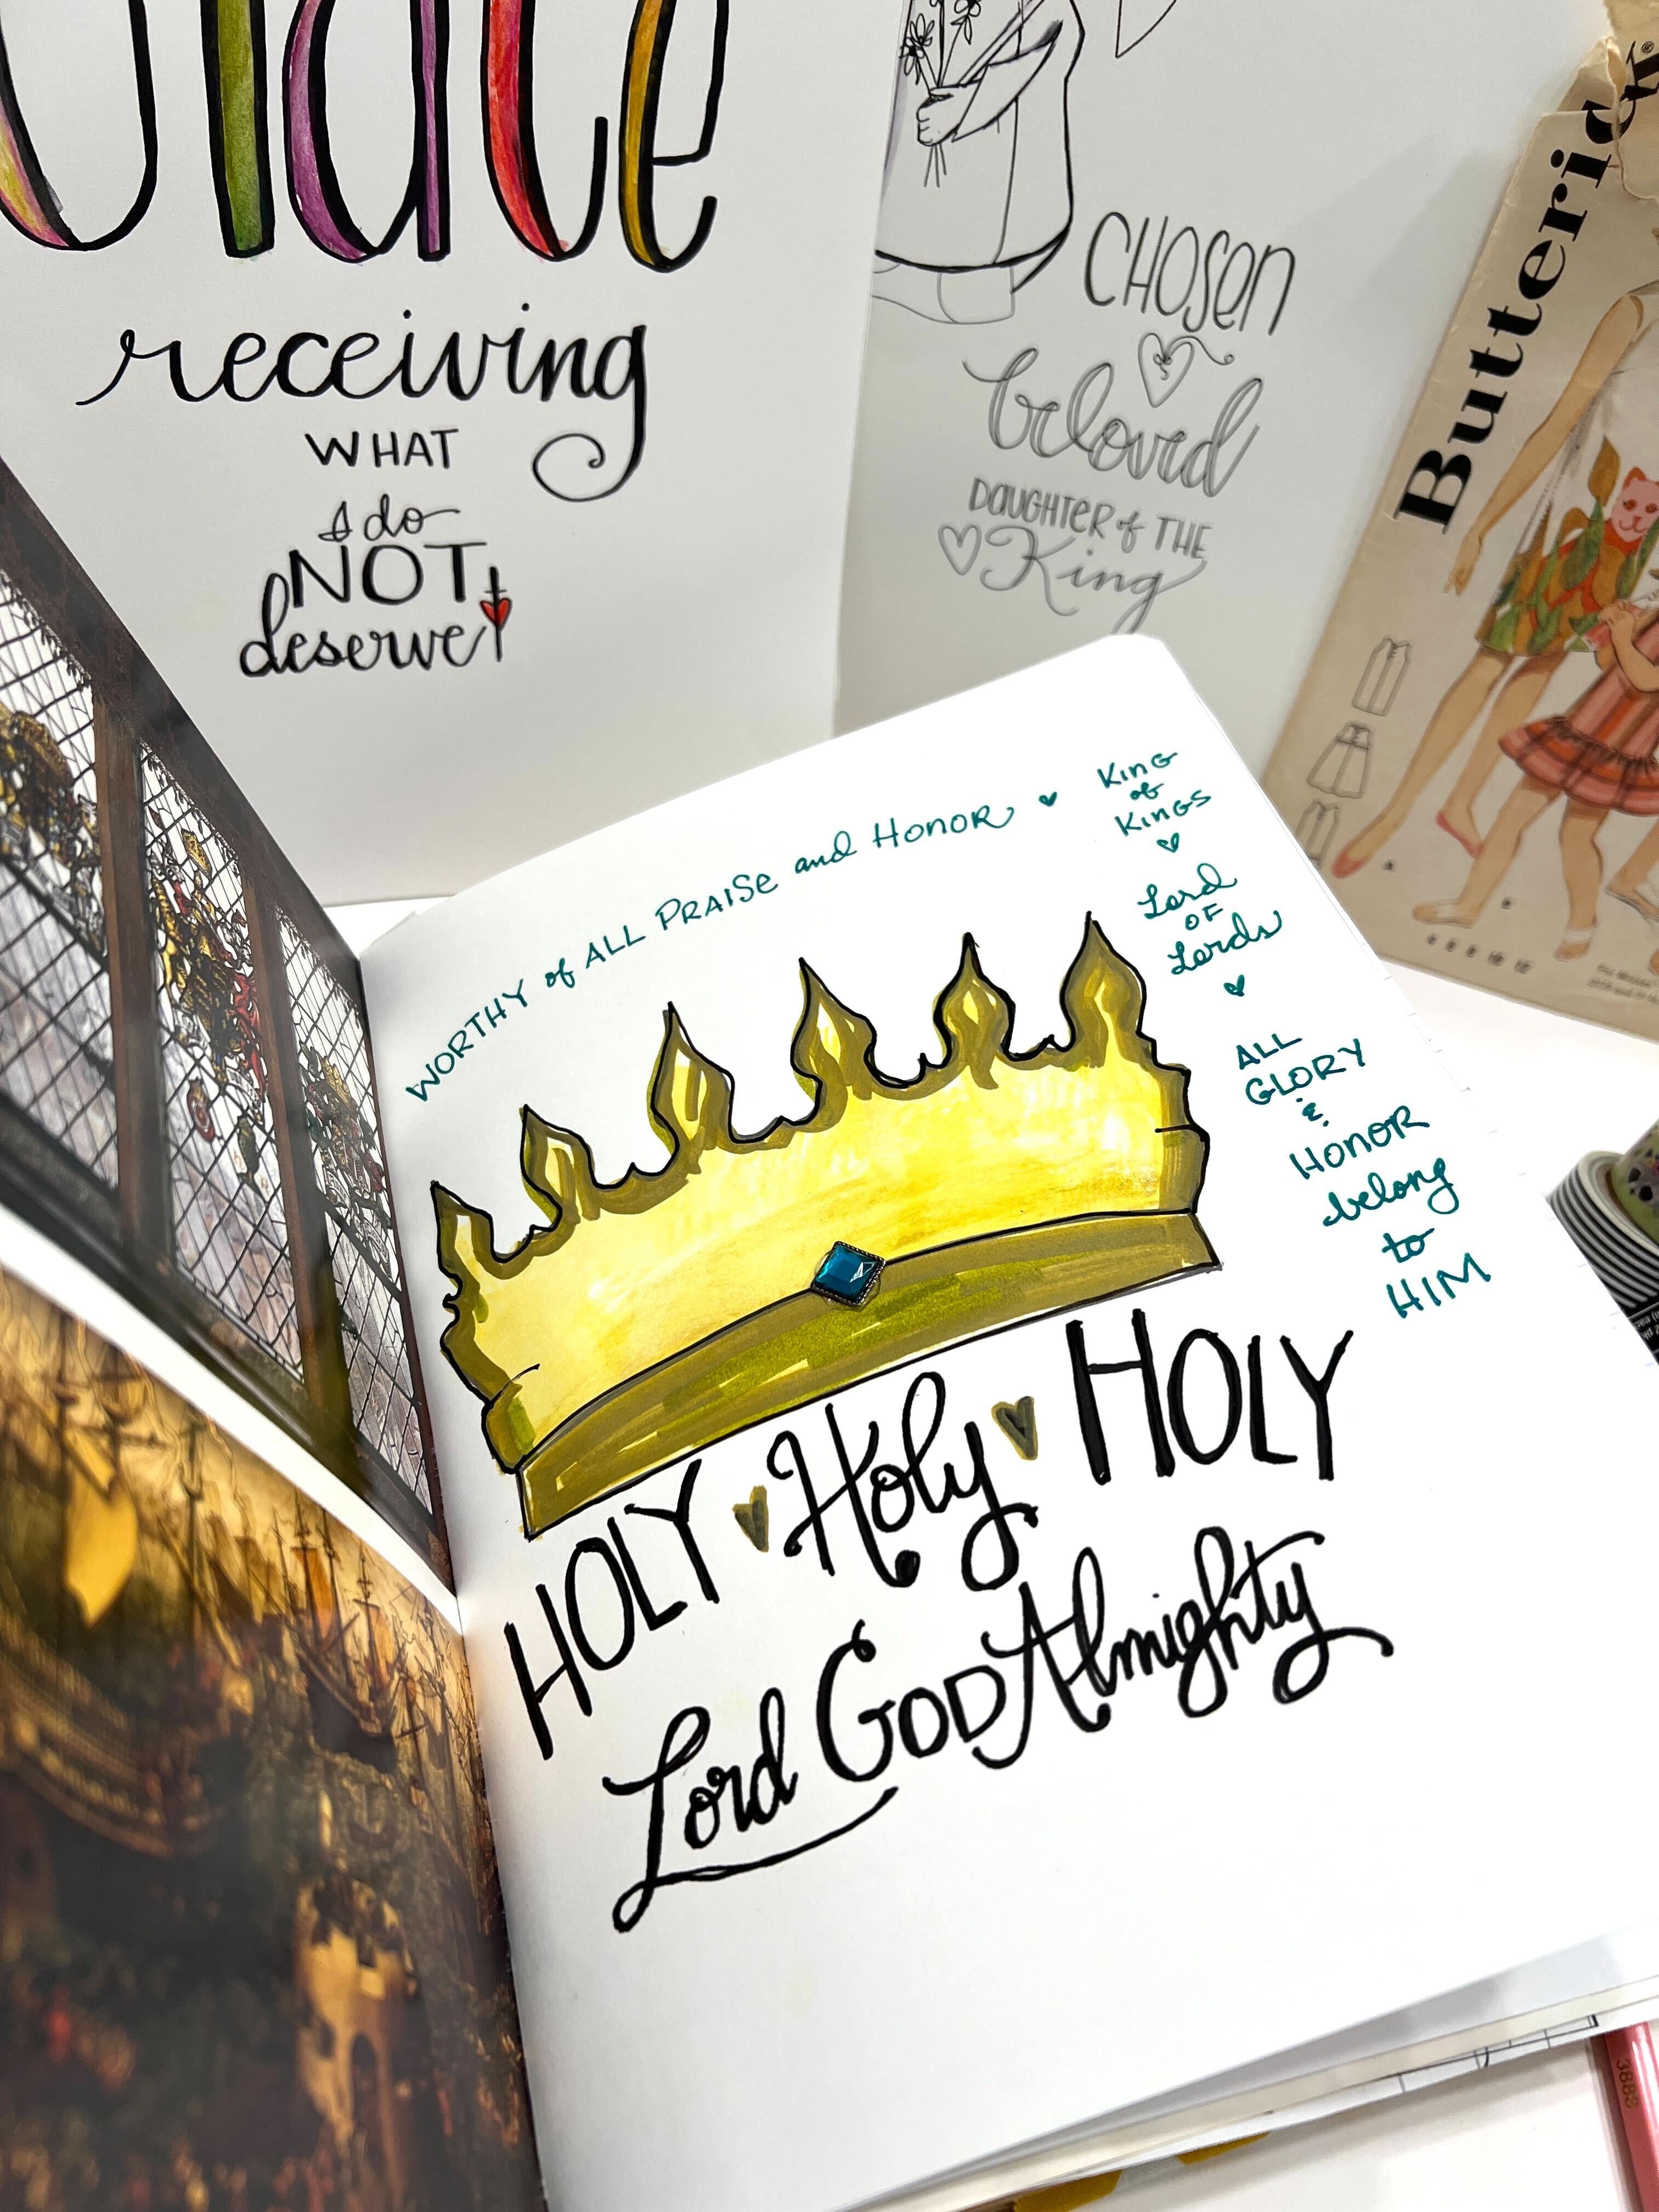 receiving
WHAT
I do
NOT
deserve
CHOSEN
beloved
DAUGHTER of THE
King
Butterick
WORTHY of ALL PRAISE and HONOR
KING
of
KINGS
Lord
OF
Lords
ALL
GLORY
&
HONOR
belong
to
HIM
HOLY Holy HOLY
Lord GOD Almighty
3883